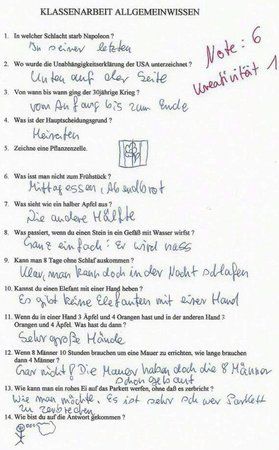 KLASSENARBEIT ALLGEMEINWISSEN
1. In welcher Schlacht starb Napoleon ?
In seiner letzten
Note: 6
Kreativität 1
2. Wo wurde die Unabhängigkeitserklärung der USA unterzeichnet ?
Unten auf der Seite
3. Von wann bis wann ging der 30jährige Krieg ?
vom Anfang bis zum Ende
4. Was ist der Hauptscheidungsgrund ?
Heiraten
5. Zeichne eine Pflanzenzelle.
6. Was isst man nicht zum Frühstück ?
Mittagessen, Abendbrot
7. Was sieht wie ein halber Apfel aus ?
Die andere Hälfte
8. Was passiert, wenn du einen Stein in ein Gefäß mit Wasser wirfst ?
Ganz einfach: Er wird nass
9. Kann man 8 Tage ohne Schlaf auskommen ?
Klar, man kann doch in der Nacht schlafen
10. Kannst du einen Elefant mit einer Hand heben ?
Es gibt keine Elefanten mit einer Hand
11. Wenn du in einer Hand 3 Äpfel und 4 Orangen hast und in der anderen Hand 3
Orangen und 4 Äpfel. Was hast du dann ?
Sehr große Hände
12. Wenn 8 Männer 10 Stunden brauchen um eine Mauer zu errichten, wie lange brauchen
dann 4 Männer ?
Gar nicht! Die Mauer haben doch die 8 Männer
schon gebaut
13. Wie kann man ein rohes Ei auf das Parkett werfen, ohne daß es zerbricht ?
Wie man möchte. Es ist sehr schwer Parkett
zu zerbrechen
14. Wie bist du auf die Antwort gekommen ?